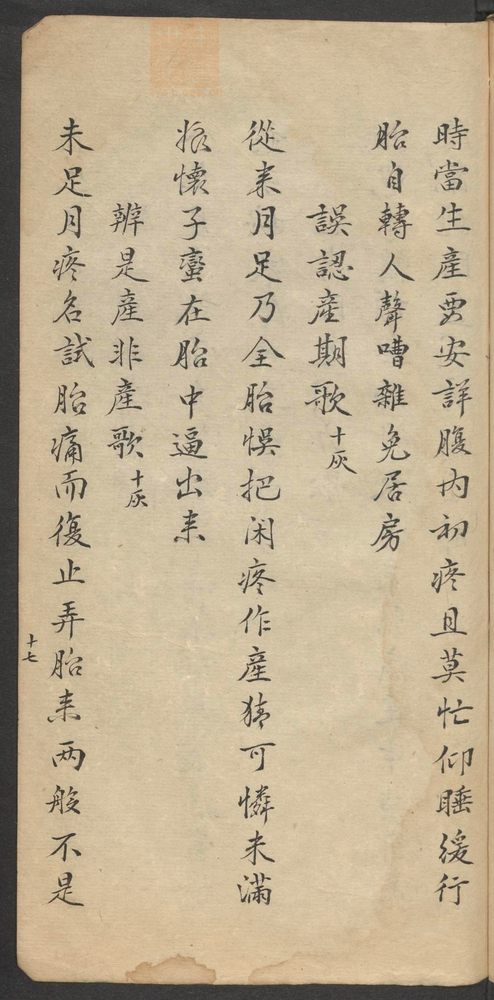 時當生產要安詳腹內初疼且莫忙仰睡緩行
胎自轉人聲嘈雜免居房
誤認產期歌十灰
從来月足乃全胎悞把闲疼作產猜可憐未滿
懷子蛮在胎中逼出来
辨是產非產歌十灰
未足月疼名試胎痛而復止弄胎来两般不是
十七